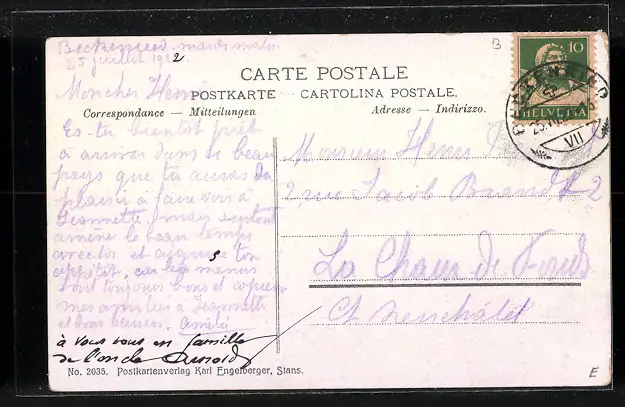 Beckenried mardi matin
25 juillet 1922
Mon cher Henri
CARTE POSTALE
POSTKARTE — CARTOLINA POSTALE.
Correspondance — Mitteilungen
Adresse — Indirizzo.
Es-tu bientôt prêt
à arriver dans ce beau
pays que tu auras du
plaisir à faire voir à
Jeannette, mais surtout
amène le beau temps
avec toi et aiguise ton
appétit, car les menus
sont toujours bons et copieux
mes amitiés à Jeannette
et bons baisers. Amélie
à vous tous en famille
de l'oncle Arnold
Monsieur Henri
2, rue Jacob Brandt 2
La Chaux de Fonds
Ct. Neuchâtel
10
HELVETIA
BECKENRIED
VII
B
E
No. 2035. Postkartenverlag Karl Engelberger, Stans.